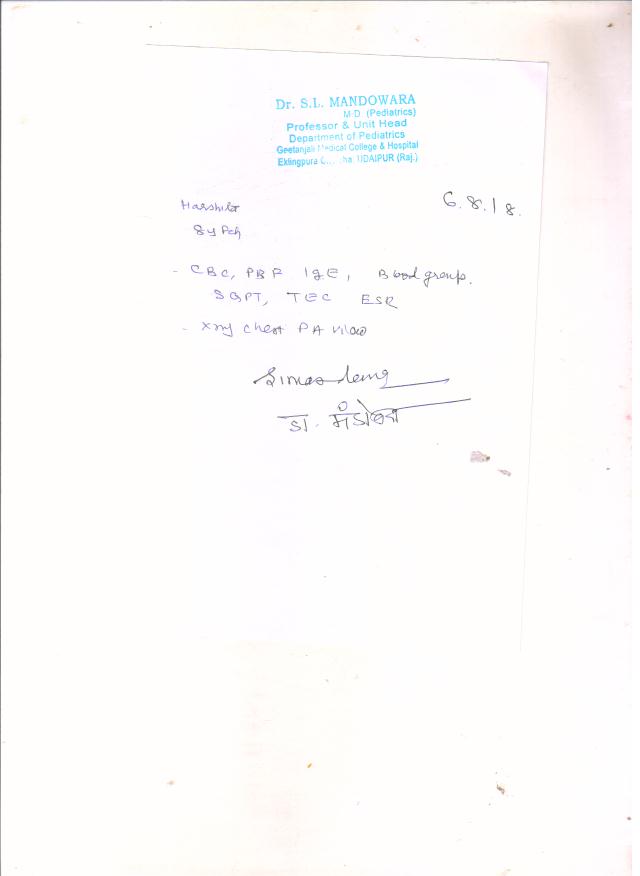 Dr. S.L. MANDOWARA
M.D. (Pediatrics)
Professor & Unit Head
Department of Pediatrics
Geetanjali Medical College & Hospital
Eklingpura UDAIPUR (Raj.)
6.8.18.
Harshita
8y
- CBC, PBF IgE, Blood group.
SGPT, TEC ESR
- Xray chest PA view
डा. मंडोवरा